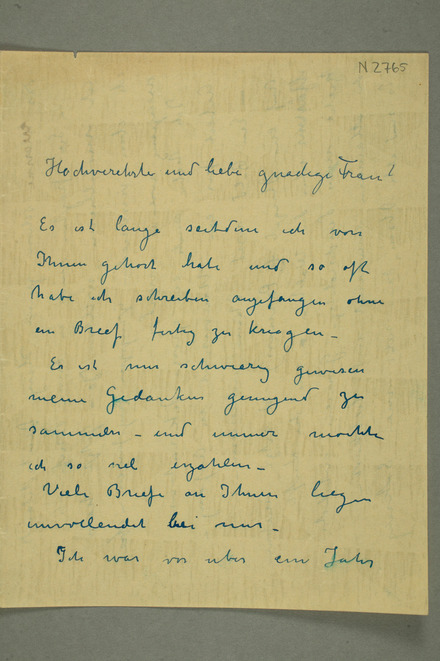 N 2765
Hochverehrte und liebe gnadige Frau!
Es ist lange seitdem ich von
Ihnen gehort habe und so oft
habe ich schreiben angefangen ohne
ein Breef fertig zu kriegen –
Es ist mir schwierig gewesen
meine Gedanken genugend zu
sammeln – und immer mochte
ich so viel erzahlen –
Viele Briefe an Ihnen liegen
unvollendet bei mir –
Ich war vor uber ein Jahr